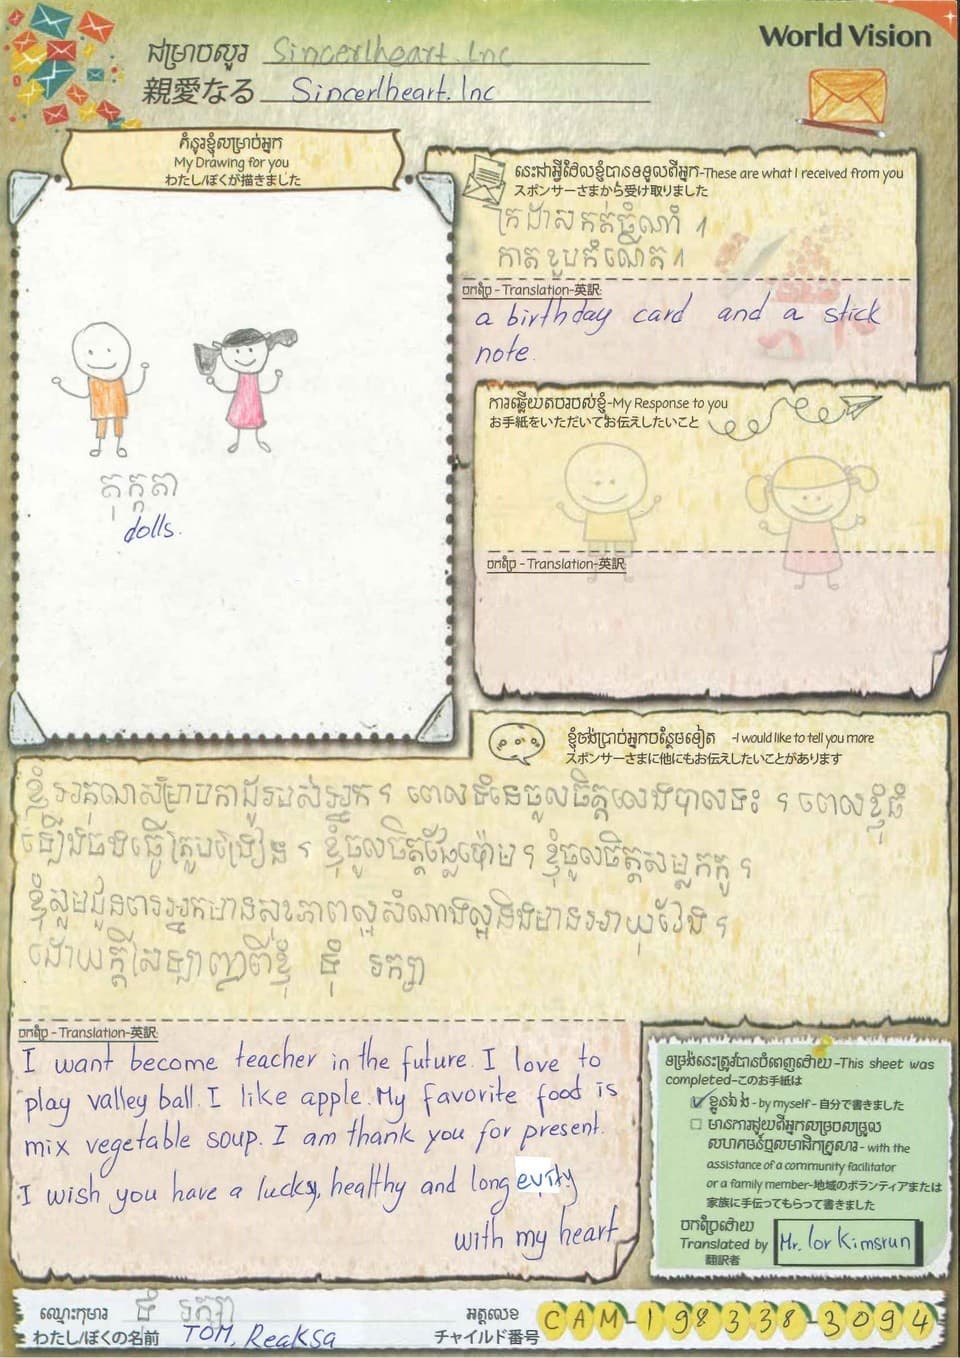 World Vision
ជម្រាបសួរ Sincerlheart.Inc
親愛なる Sincerlheart.Inc
គំនូរខ្ញុំសម្រាប់អ្នក
My Drawing for you
わたし/ぼくが描きました
តុក្កតា
dolls.
នេះជាអ្វីដែលខ្ញុំបានទទួលពីអ្នក-These are what I received from you
スポンサーさまから受け取りました
ក្រដាសកត់ចំណាំ ។
កាតខួបកំណើត ។
បកប្រែ - Translation-英訳:
a birthday card and a stick
note.
ការឆ្លើយតបរបស់ខ្ញុំ-My Response to you
お手紙をいただいてお伝えしたいこと
បកប្រែ - Translation-英訳:
ខ្ញុំចង់ប្រាប់អ្នកបន្ថែមទៀត -I would like to tell you more
スポンサーさまに他にもお伝えしたいことがあります
ខ្ញុំអរគុណសម្រាប់កាដូរបស់អ្នក ។ ពេលទំនេចូលចិត្តលេងបាលទះ ។ ពេលខ្ញុំធំ
ឡើងចង់ធ្វើគ្រូបង្រៀន ។ ខ្ញុំចូលចិត្តផ្លែប៉ោម ។ ខ្ញុំចូលចិត្តសម្លកកូ ។
ខ្ញុំសូមជូនពរអ្នកមានសុខភាពល្អសំណាងល្អនិងមានអាយុវែង ។
ដោយក្ដីស្រឡាញ់ពីខ្ញុំ ធុំ រក្សា
បកប្រែ - Translation-英訳:
I want become teacher in the future. I love to
play valley ball. I like apple. My favorite food is
mix vegetable soup. I am thank you for present.
I wish you have a lucky, healthy and longevity
with my heart
ទម្រង់នេះត្រូវបានបំពេញដោយ -This sheet was
completed-このお手紙は
ខ្លួនឯង - by myself - 自分で書きました
មានការជួយពីអ្នកសម្របសម្រួល
សហគមន៍ឬសមាជិកគ្រួសារ - with the
assistance of a community facilitator
or a family member-地域のボランティアまたは
家族に手伝ってもらって書きました
បកប្រែដោយ
Translated by Mr. lor Kimsrun
翻訳者
ឈ្មោះកុមារ ធុំ រក្សា
わたし/ぼくの名前 TOM, Reaksa
អត្តលេខ
チャイルド番号 CAM-198338-3094